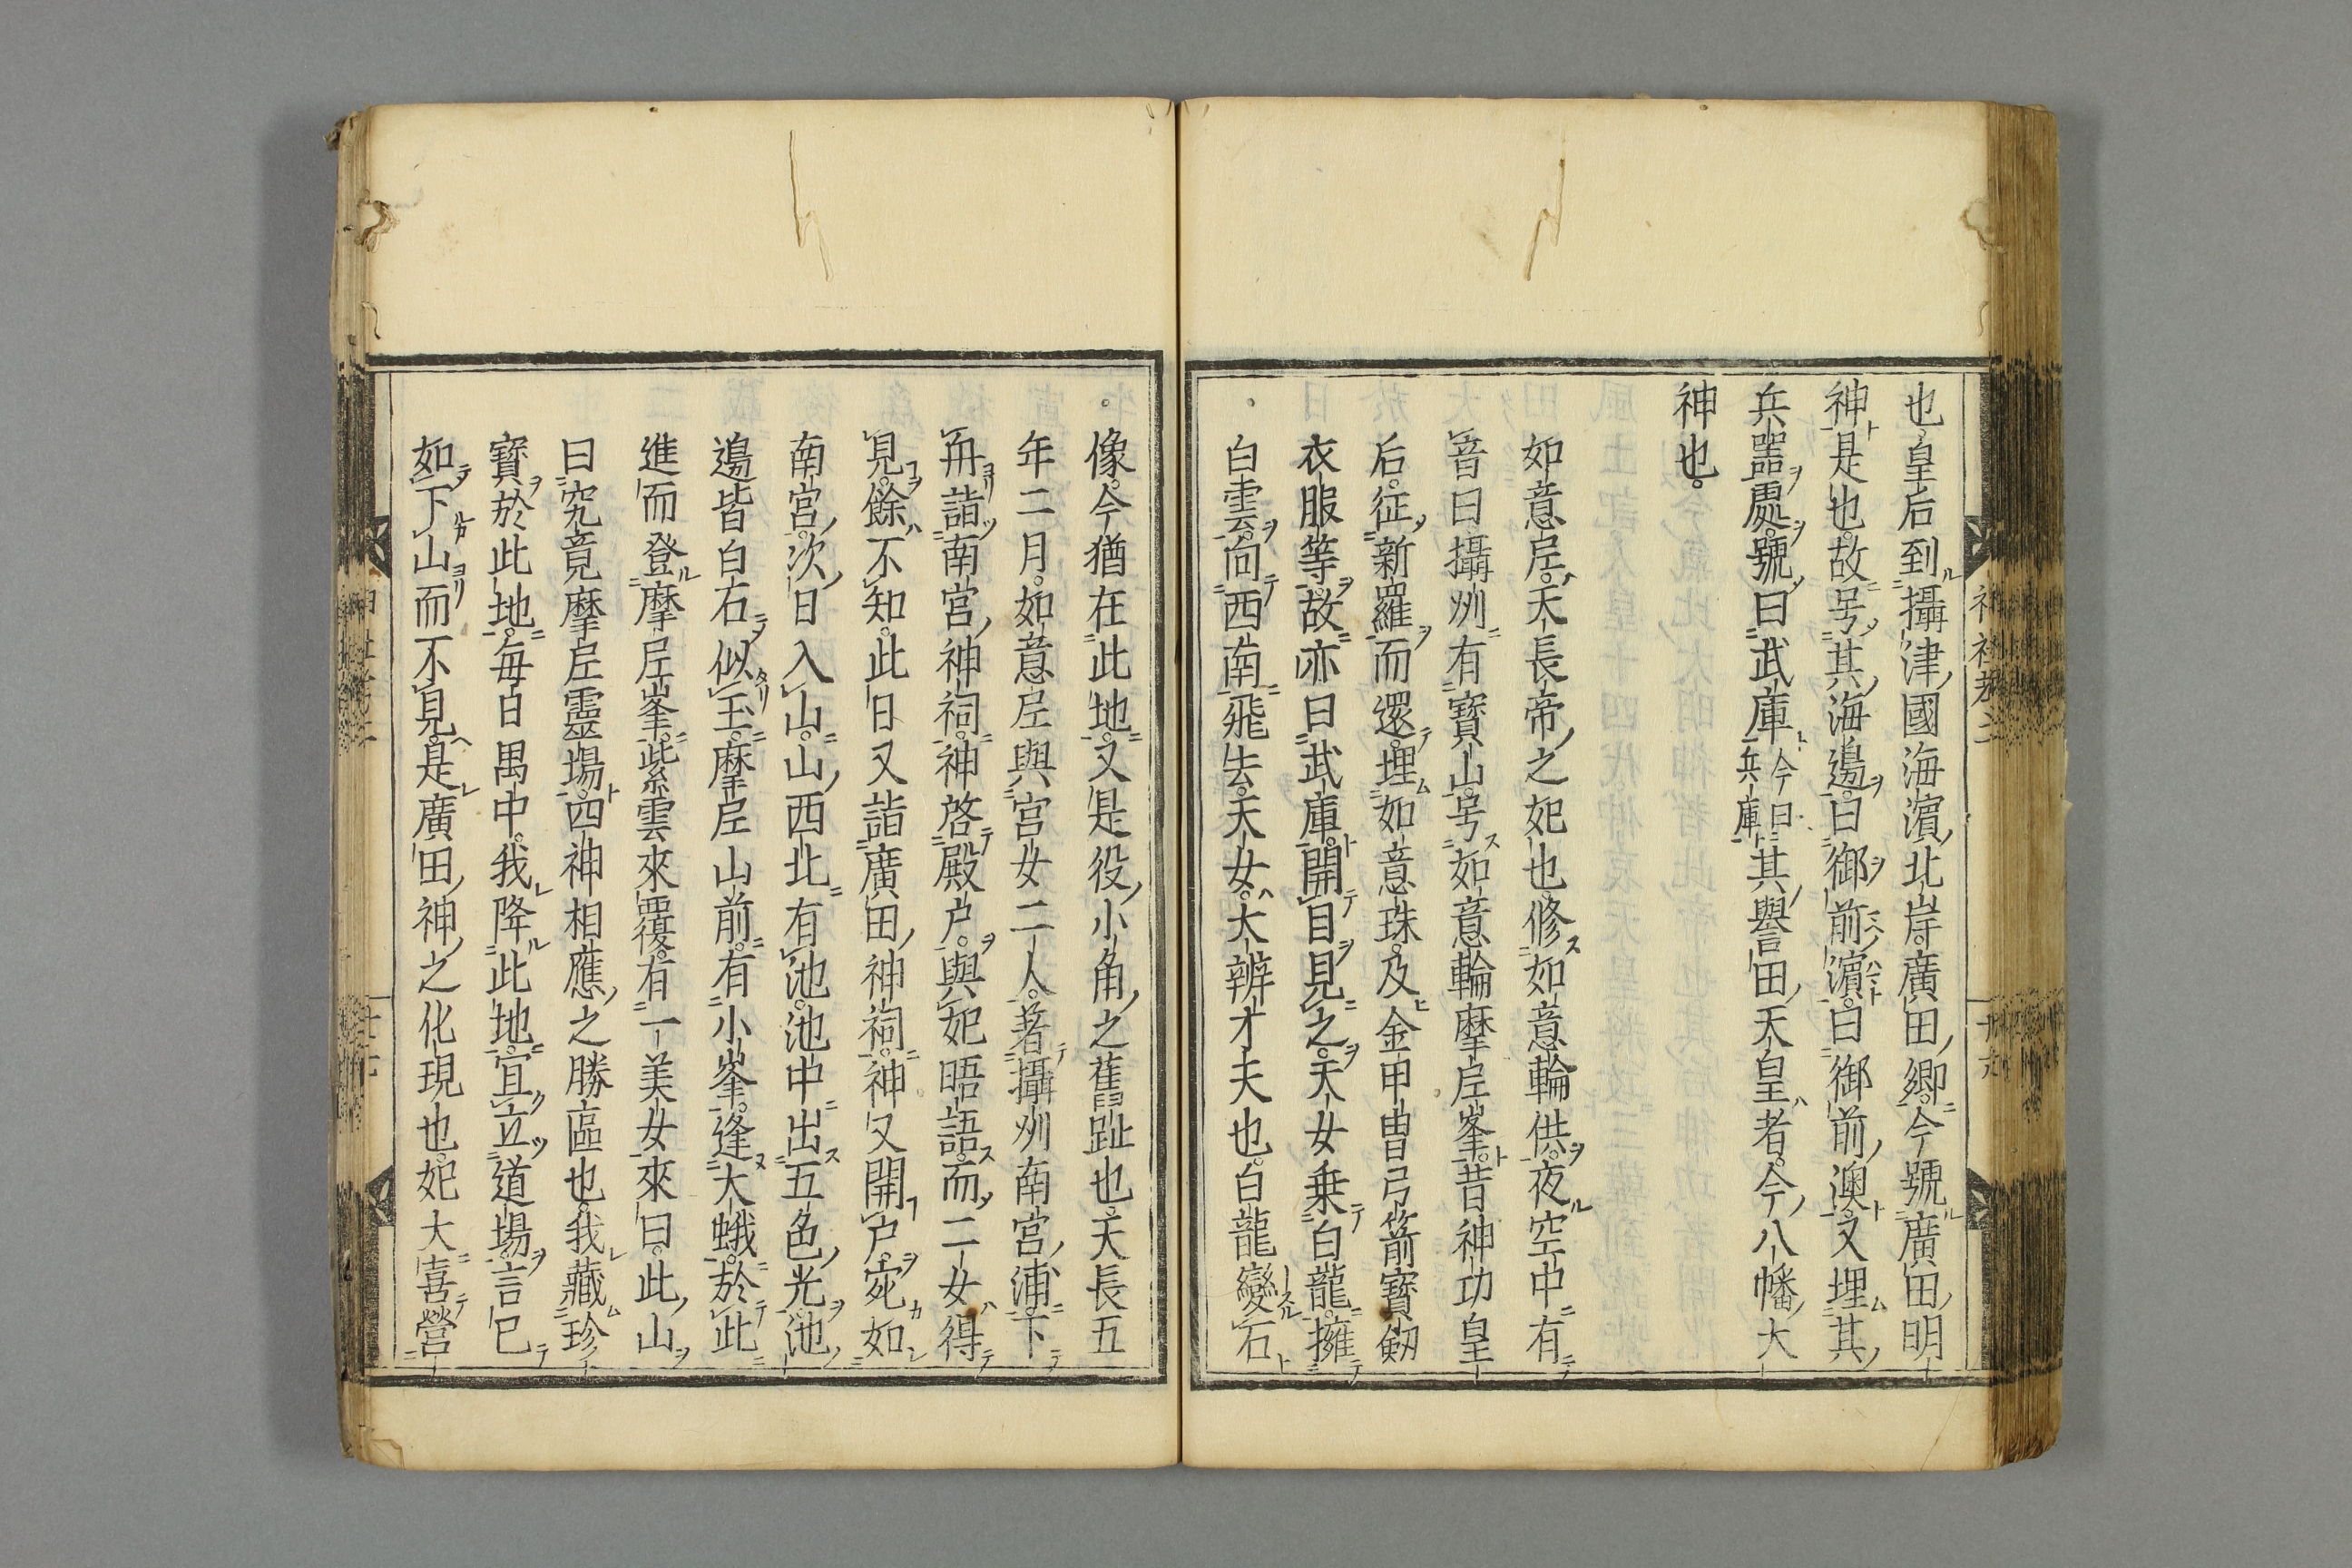 也皇后到攝津國海濵北岸廣田郷今號廣田明
神是也故号其海邉曰御前濵曰御前澳又埋其
兵噐處號曰武庫今曰兵庫其譽田天皇者今八幡大
神也
如意尼天長帝之妃也修如意輪供夜空中有
音曰攝州有寶山号如意輪摩尼峯昔神功皇
后征新羅而還埋如意珠及金甲冑弓箭寶劔
衣服等故亦曰武庫開目見之天女乗白龍擁
白雲向西南飛去天女大辨才天也白龍變石
像今猶在此地又是役小角之舊趾也天長五
年二月如意尼與宮女二人著攝州南宮浦下
舟詣南宮神祠神啓殿户與妃晤語而二女得
見餘不知此日又詣廣田神祠神又開户宛如
南宮次日入山山西北有池池中出五色光池
邉皆白石似玉摩尼山前有小峯逢大蛾於此
進而登摩尼峯紫雲來覆有一美女來曰此山
曰究竟摩尼靈場四神相應之勝區也我藏珍
寶於此地毎日禺中我降此地宜立道場言已
如下山而不見是廣田神之化現也妃大喜營